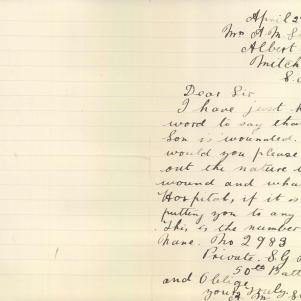 April 2
Mrs A M S
Albert
Mitch
S.
Dear Sir
I have just
word to say tha
Son is wounded.
would you please
out the nature
wound and wha
Hospital, if it is
putting you to any
This is the number
Name. No 2983
Private. S G
50th Batt
and Oblige
yours truly.
A. M. S